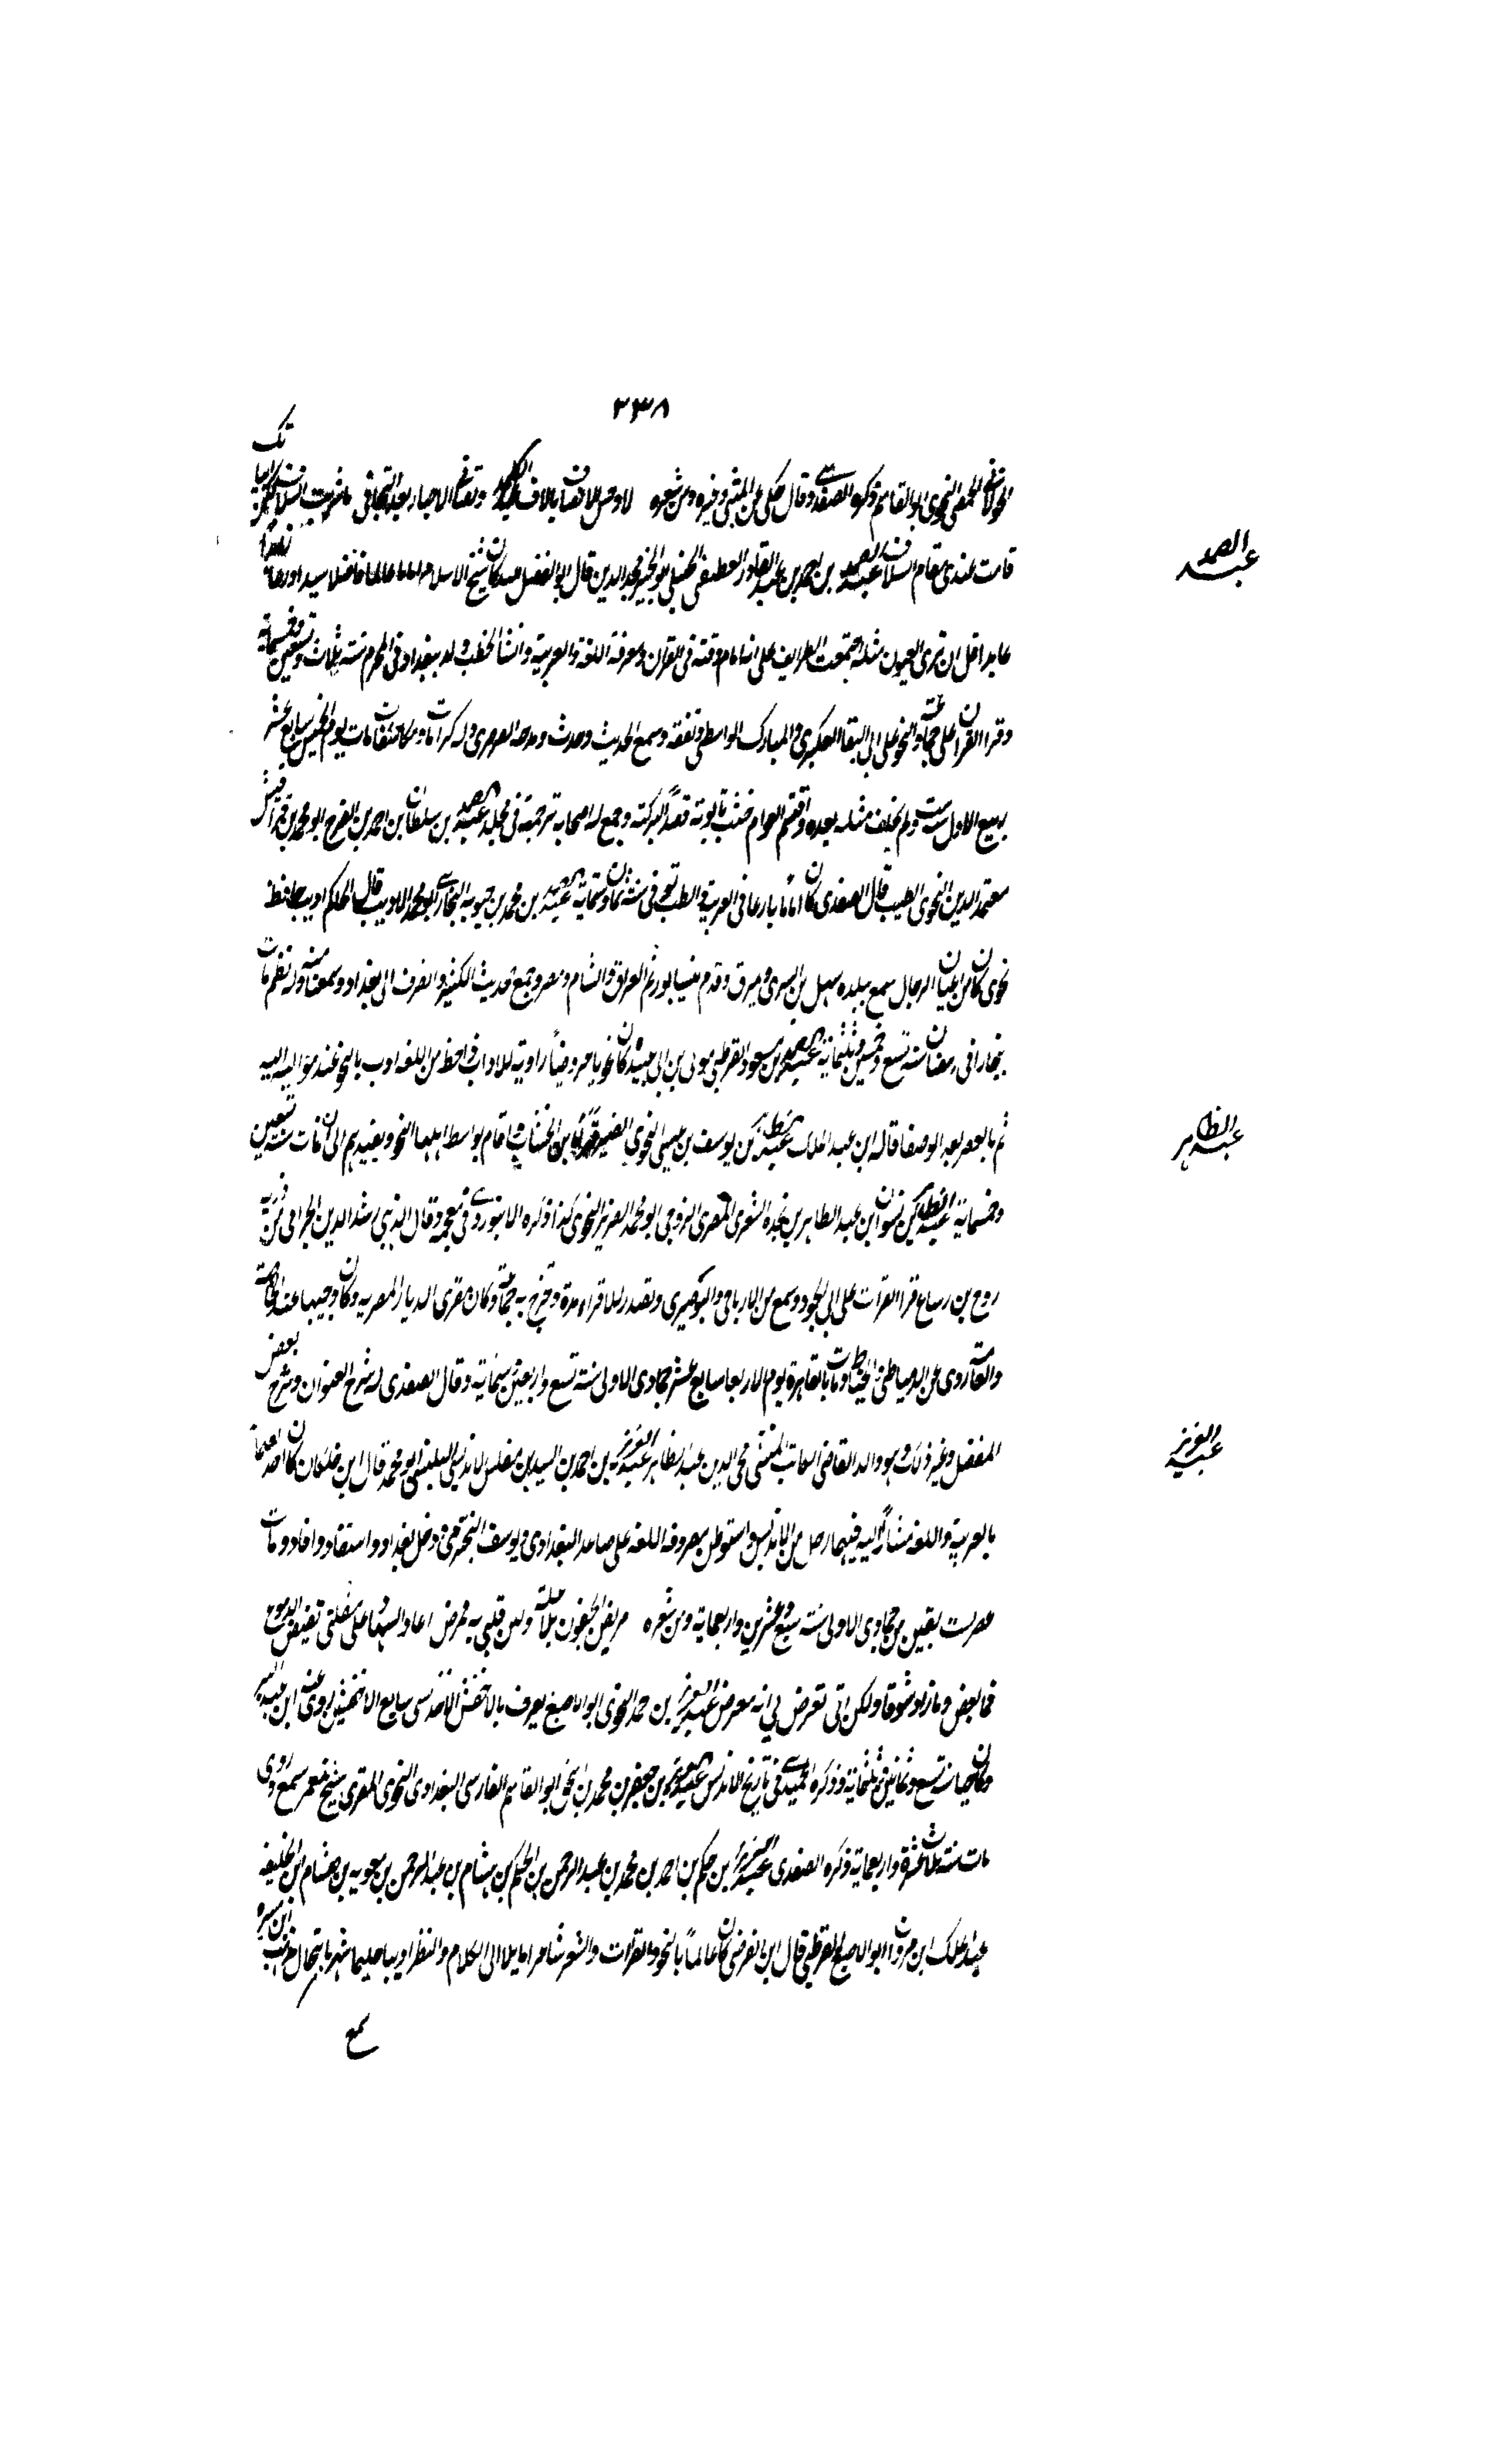 ٣٣٨
النحوي ابو القاسم ذكره الصفدي وقال حكى عن المتنبي وغيره ومن شعره
قامت عندي مقام السلاف عبد الصمد بن احمد بن عبد القادر الحنبلي ابو الخير مجد الدين قال ابو الفضل كان شيخ الاسلام اماما عالما فاضلا سيدا ورعا
عبد الصمد
عابدا قل ان ترى العيون مثله اجتمعت الطوايف على انه امام وقته في القران ومعرفة اللغة والعربية وانشا الخطب ولد ببغداد في المحرم سنة ثلاث وتسعين وخمسماية
وقرا القران على جماعة والنحو على ابي البقا العكبري والمبارك الواسطي وتفقه وسمع الحديث وحدث ومدحه الصرصري وله كرامات ومكاشفات مات يوم الخميس سابع عشر
ربيع الاول سنة ست ولم يخلف مثله بعده واقتسم العوام خشب تابوته قصد البركته وجمع له اصحابه ترجمة في مجلد عبد الصمد بن سلطان بن احمد بن الفرج ابو محمد بن قراقيش
معتمد الدين النحوي الطبيب قال الصفدي كان اماما بارعا في العربية والطب توفي سنة ثمان وستماية عبد الصمد بن محمد بن حيويه البخاري ابو محمد الاديب قال الحاكم اديب حافظ
نحوي كان من اعيان الرجال سمع ببلده سهل بن السري وقدم نيسابور ثم العراق والشام ومصر وجمع الحديث الكثير وانصرف الى بغداد وسمعنا منه وله نظم مات
بخارا في رمضان سنة تسع وخمسين وثلثماية عبد الصمد بن مسعود القرطبي مولى بن ابي عبيدة كان نحويا عروضيا راوية للاداب ذا حظ من اللغة ادب بالنحو عند مواليه
ثم بالعصر بعد الوصفا قاله ابن عبد الملك عبد الظاهر بن يوسف بن عيسى النحوي الضرير واقام بواسط اهلها النحو ويفيدهم الى ان مات سنة تسعين
عبد الظاهر
وخمسماية عبد الظاهر بن نشوان ابن عبد الظاهر بن نجده السعدي المصري الروحي ابو محمد الضرير النحوي كذا ذكره في معجمه وقال الذهبي رشيد الدين الجذامي من ذرية
روح بن زنباع قرا القرات على ابي الجود وسمع من الارتاحي والبوصيري وتصدر للاقراء مدة وتخرج به جماعة وكان مقرى الديار المصرية وكان وجيها عند الخاصة
والعامة روى عن الدمياطي ومات بالقاهرة يوم الاربعا سابع عشر جمادى الاولى سنة تسع واربعين وستماية وقال الصفدي له شرح العنوان وشرح بعض
المفصل وغير ذلك وهو والد القاضي الكاتب المنشي محي الدين عبد الظاهر عبد العزيز بن احمد بن السيد بن مغلس الاندلسي البلنسي ابو محمد قال ابن خلكان كان احد العلماء
عبد العزيز
بالعربية واللغة مشارا اليه فيهما رحل من الاندلس واستوطن مصر وقرا اللغة على صاعد البغدادي ويوسف النجيرمي ودخل بغداد واستفاد وافاد ومات
بمصر لست بقين من جمادى الاولى سنة سبع وعشرين واربعماية ومن شعره مريض الجفون بلا علة ولكن قلبي به ممرض اعاد السهاد على مقلتي بفيض الدموع
فما تغمض وما زار شوقا ولكن اتى تعرض لي انه معرض عبد العزيز بن حمد النحوي ابو الاصبغ يعرف بالاخفش الاندلسي سابع الاخفشين روى عنه ابن عبد البر
وكان حيا سنة تسع وثمانين وثلثماية وذكره الحميدي في تاريخ الاندلس عبد العزيز بن جعفر بن محمد بن اسحق ابو القاسم الفارسي البغدادي النحوي المقري شيخ معمر سمع وروى
مات سنة ثلاث عشرة واربعماية ذكره الصفدي عبد العزيز بن حكم بن احمد بن محمد بن عبد الرحمن بن الحكم بن هشام بن عبد الرحمن بن معوية بن هشام ابن الخليفة
عبد الملك ابن مروان ابو الاصبغ القرطبي قال ابن الفرضي كان عالما بالنحو والقرات والشعر شاعرا مايلا الى الكلام والنظر اديبا حليما شهر بانتحال مذهب ابن مسره
سمع